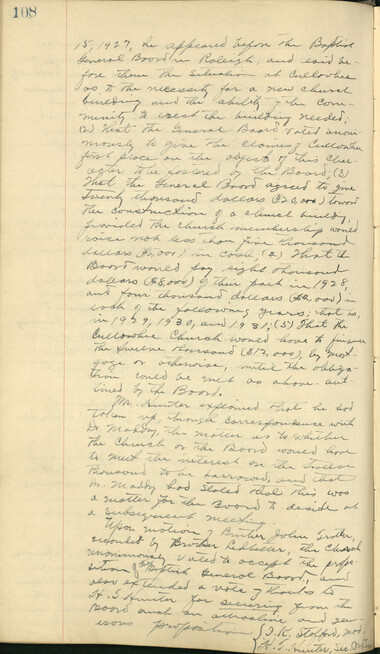 108
15, 1927, he appeared before the Baptist
General Board in Raleigh, and said be-
fore them the situation at Cullowhee
as to the necessity for a new church
building and the ability of the com-
munity to erect the building needed;
(2) That the General Board voted unani-
mously to give the claims of Cullowhee
first place on the object of this char-
acter to be fostered by the Board; (3)
That the General Board agreed to give
twenty thousand dollars ($20,000) toward
the construction of a church building,
provided the church membership would
raise not less than five thousand
dollars ($5,000) in cash; (4) That the
Board would pay eight thousand
dollars ($8,000) of their part in 1928,
and four thousand dollars ($4,000) in
each of the following years; that is,
in 1929, 1930, and 1931; (5) That the
Cullowhee Church would have to finance
the twelve thousand ($12,000), by mort-
gage or otherwise, until the obliga-
tion could be met as above out-
lined by the Board.
Mr. Hunter explained that he had
taken up, through correspondence with
Dr. Maddry, the matter as to whether
the Church or the Board would have
to meet the interest on the twelve
thousand to be borrowed, and that
Mr. Maddry had stated that this was
a matter for the Board to decide at
a subsequent meeting.
Upon motion of Brother John
seconded by Brother Ledbetter, the Church
unanimously voted to accept the propo-
sition of the Baptist General Board, and
also extended a vote of thanks to
H. T. Hunter for securing from the
Board such an attractive and gen-
erous proposition. { Mod.
H. T. Hunter, Sec.